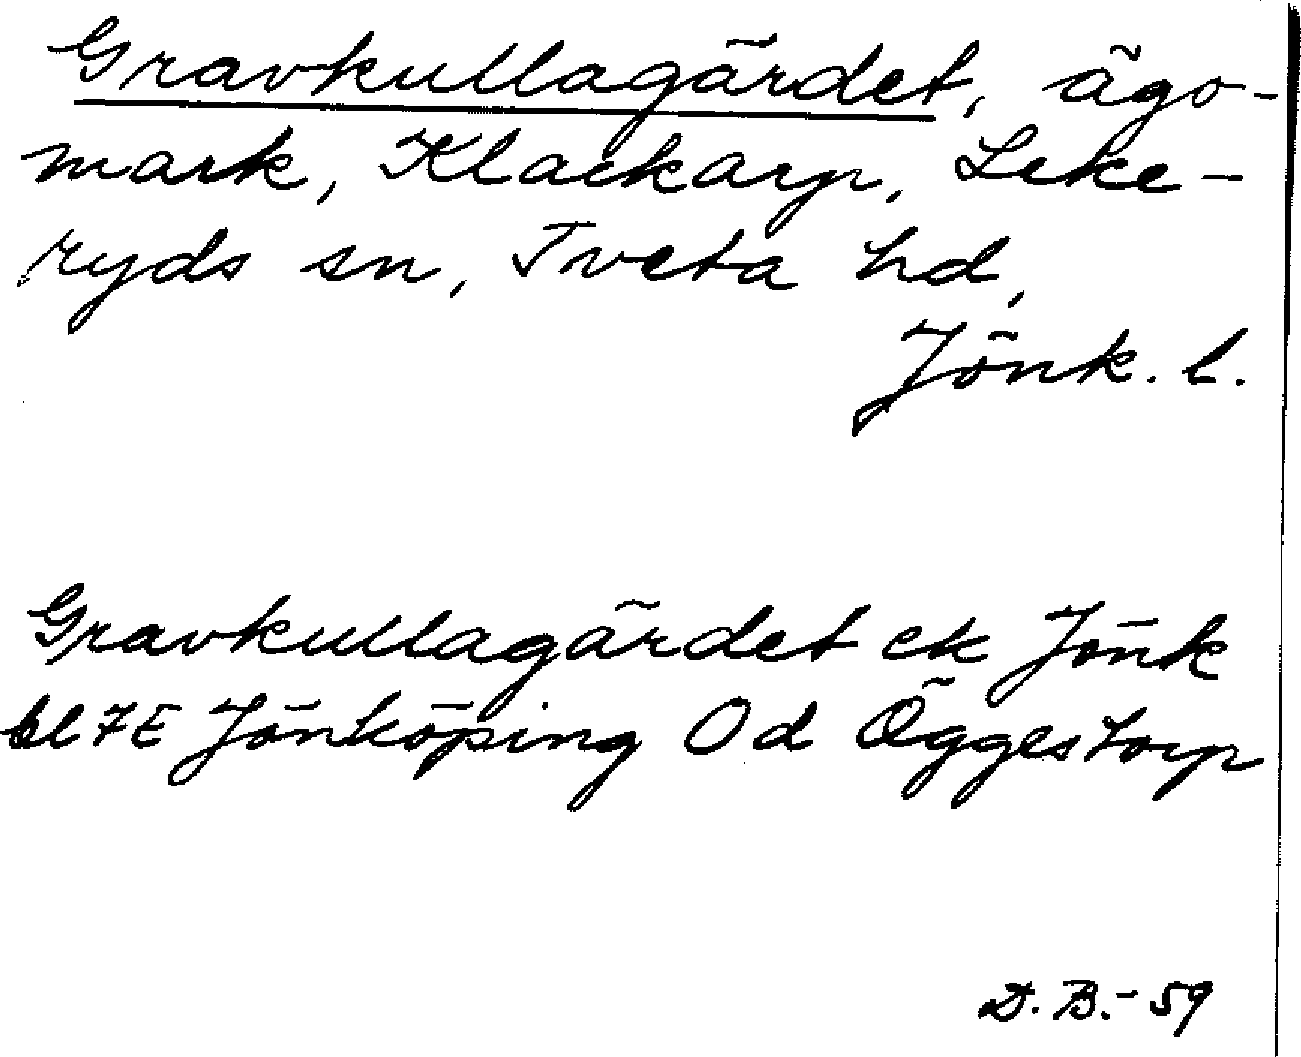 Gravkullagärdet, ägo-
mark, Klackarp, Leke-
ryds sn, Tveta hd,
Jönk. l.
Gravkullagärdet ek Jönk
bl 7E Jönköping Od Öggestorp
D. B. - 59